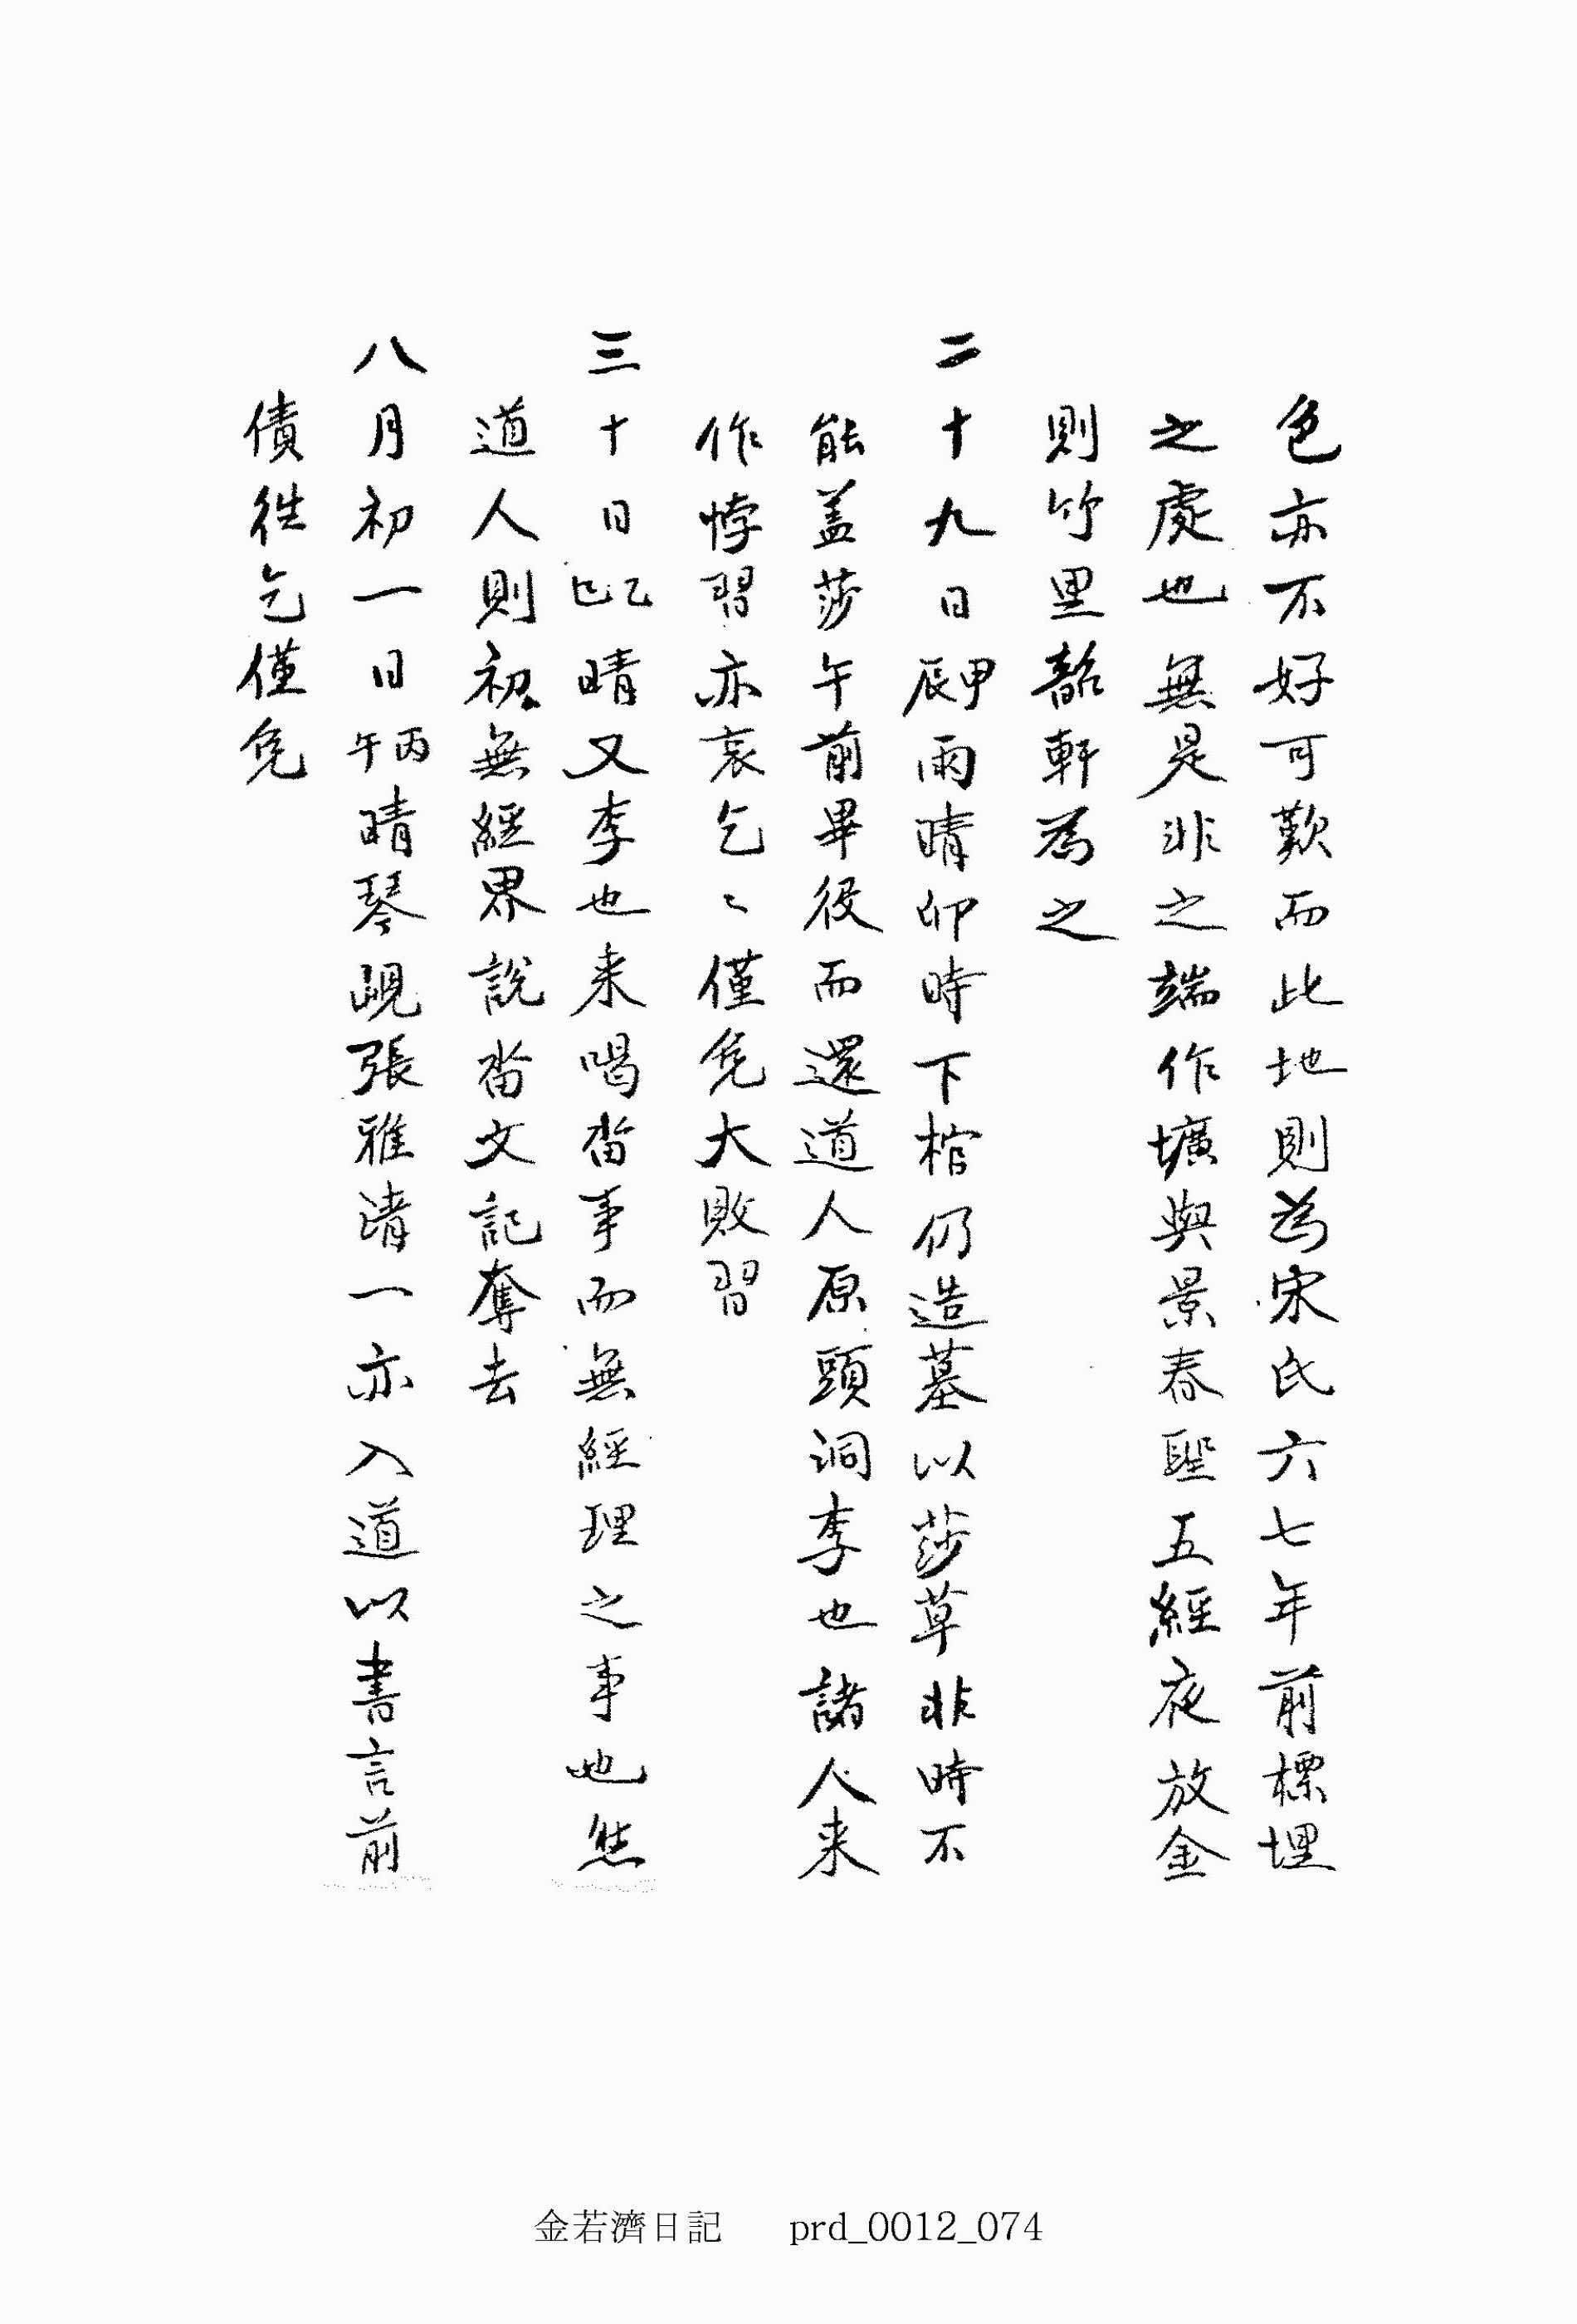 色亦不好可歎而此地則為宋氏六七年前標埋
之處也無是非之端作壙與景春聖五經夜放金
則竹里韶軒為之
二十九日甲辰雨晴卯時下棺仍造墓以莎草非時不
能盖莎午前畢役而還道人原頭洞李也諸人来
作悖習亦哀乞〻僅免大敗習
三十日乙巳晴又李也来喝畓事而無經理之事也然
道人則初無經界說畓文記奪去
八月初一日丙午晴琴峴張雅淸一亦入道以書言前
債徃乞僅免
金若濟日記 prd_0012_074